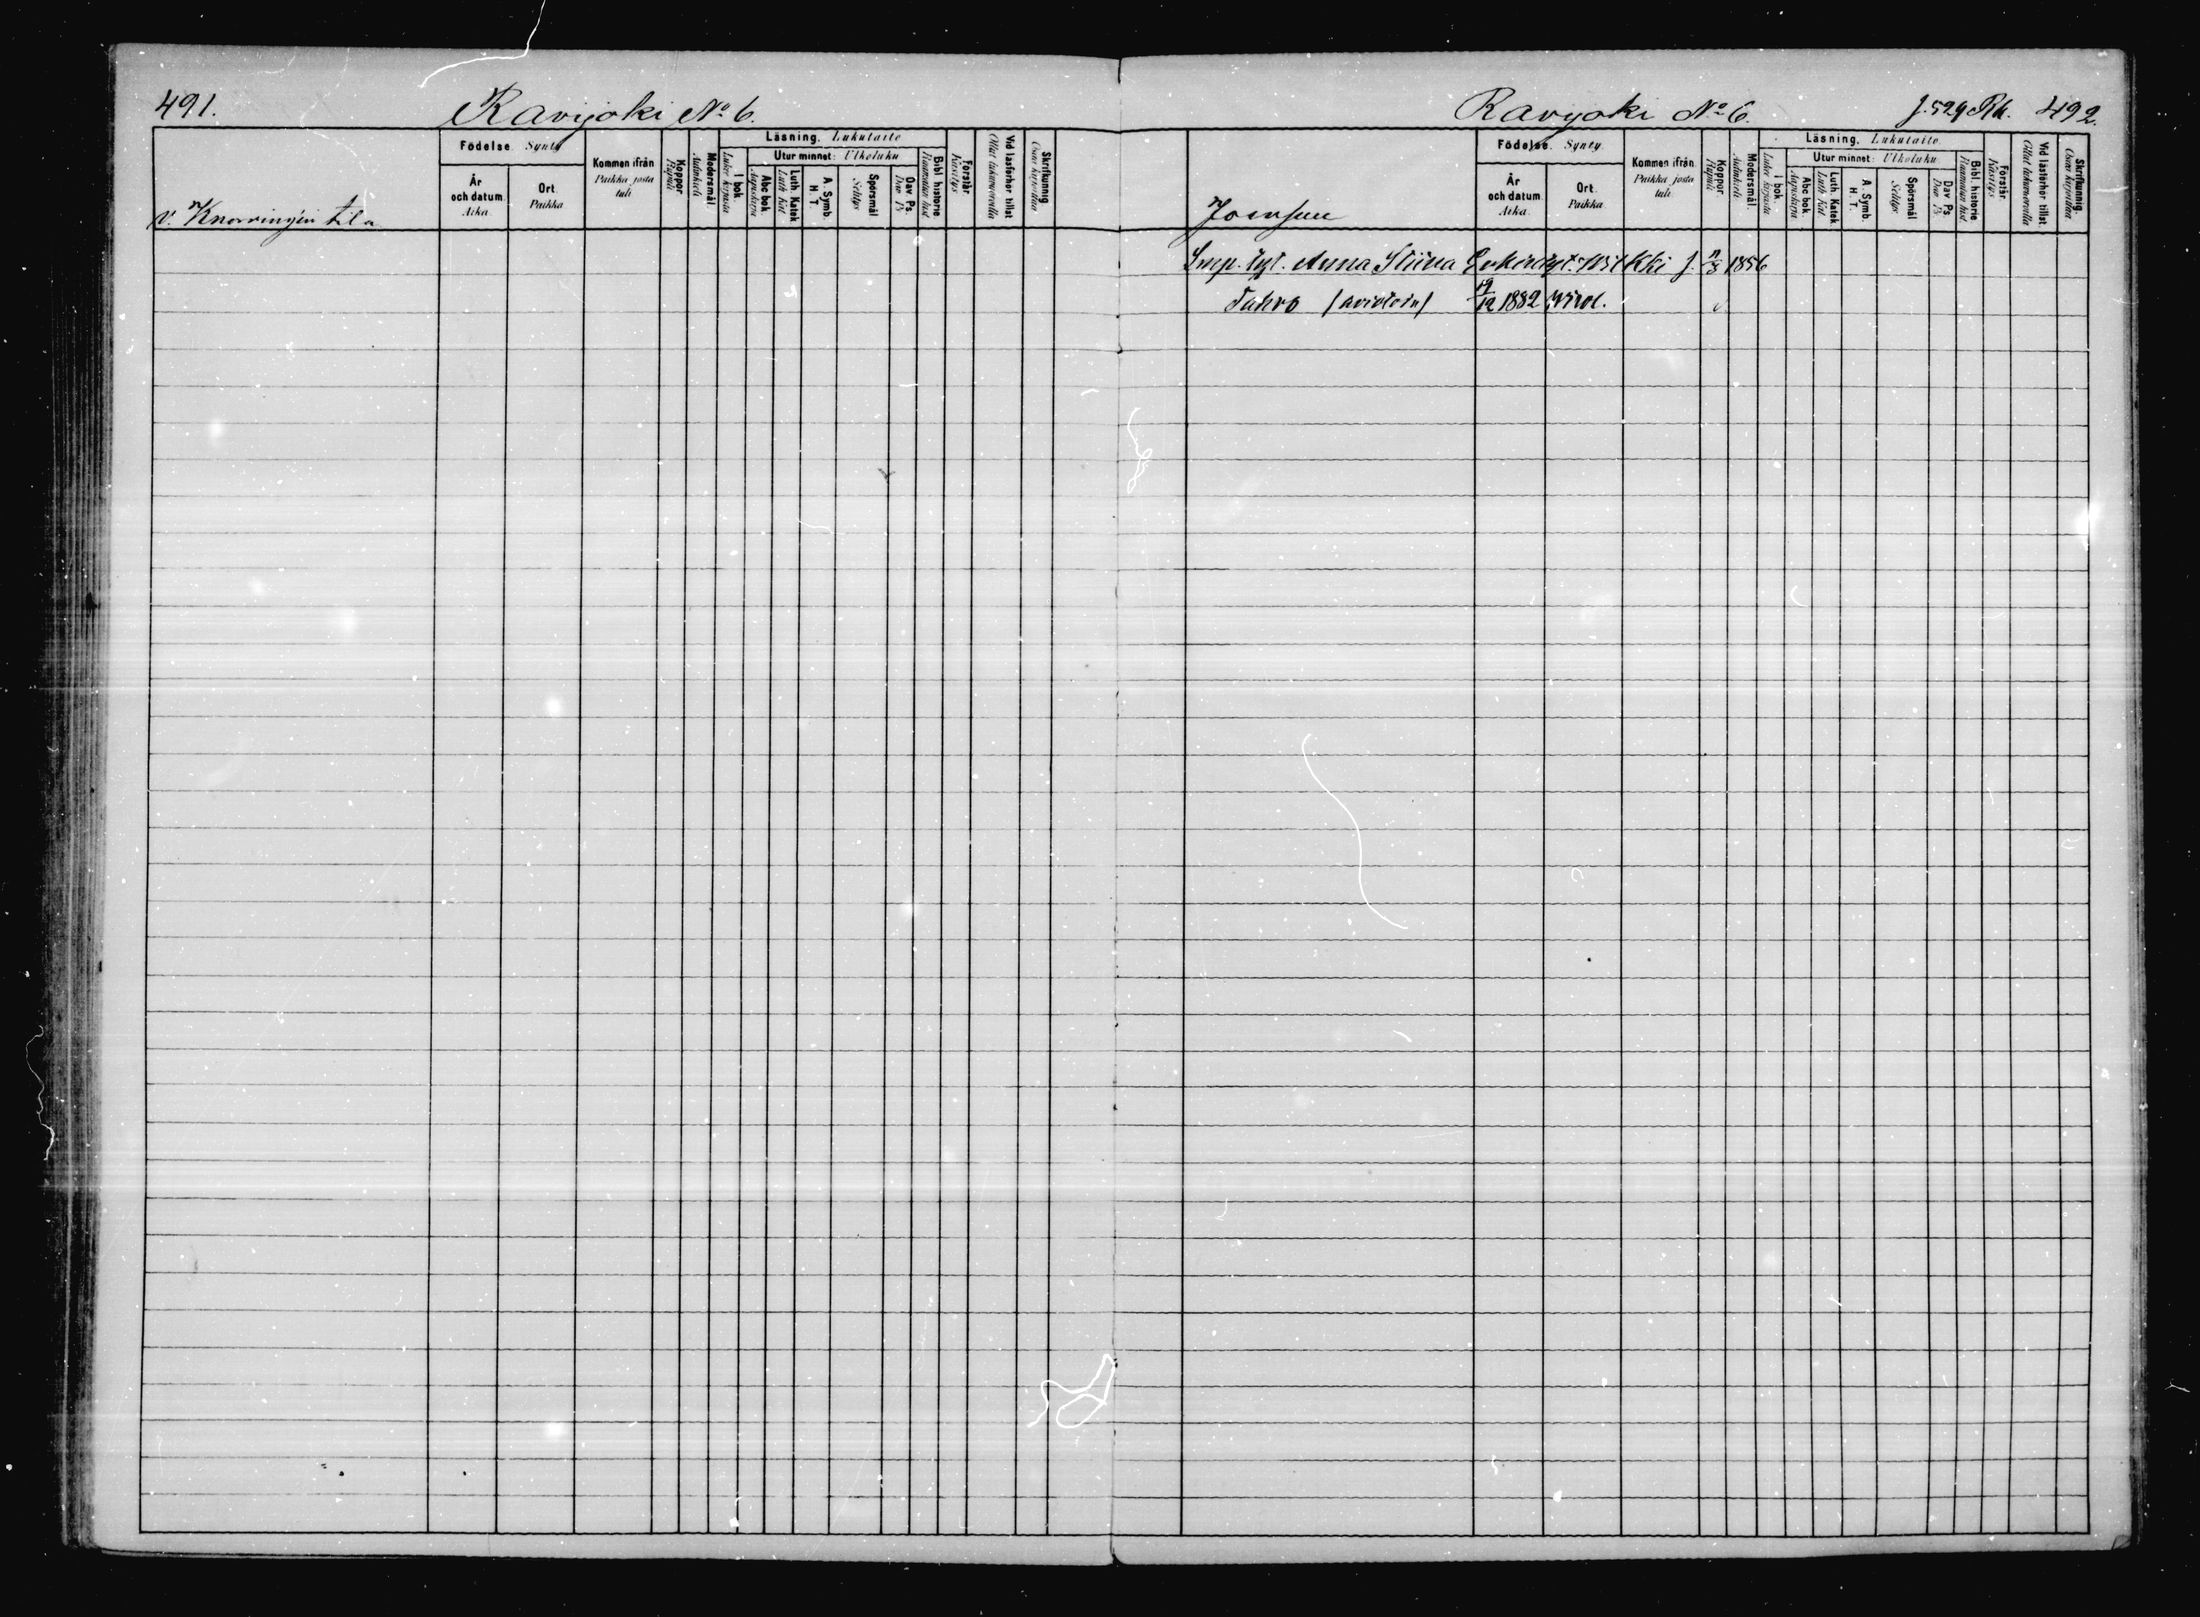 491.
Ravijoki No 6.
Födelse. Synty
Kommen ifrån
Paikka josta
tuli
Koppor
Rupuli
Modersmål
Äidinkieli
Läsning. Lukutaito
Utur minnet: Ulkoluku
I bok
Lukee kirjasta
Abc bok
Aapiskirja
Luth. Katek
Luth Kat
A. Symb.
H. T.
Spörsmål
Selitys
Dav Ps.
Dav Ps
Bibl historie
Raamatun hist
Förstår
Käsitys
Vid läsförhör tillst.
Ollut lukuvuorolla
Skrifkunnig
Osaa kirjoittaa
År
och datum
Aika.
Ort.
Paikka
v. Knorring'in tila
Ravijoki No 6.
f. 529 Rk. 492.
Födelse. Synty.
Kommen ifrån
Paikka josta
tuli
Koppor
Rupuli
Modersmål.
Äidinkieli
Läsning. Lukutaito.
Utur minnet: Ulkoluku
I bok
Lukee kirjasta
Abc bok.
Aapiskirja
Luth. Katek
Luth Kat
A. Symb.
H. T.
Spörsmål
Selitys
Dav Ps
Dav Ps
Bibl historie
Raamatun hist
Förstår
Käsitys
Vid läsförhör tillst.
Ollut lukuvuorolla
Skrifkunnig.
Osaa kirjoittaa
År
och datum.
Aika.
Ort.
Paikka.
Anna Stiina 1856
19/12 1882 Wirol.